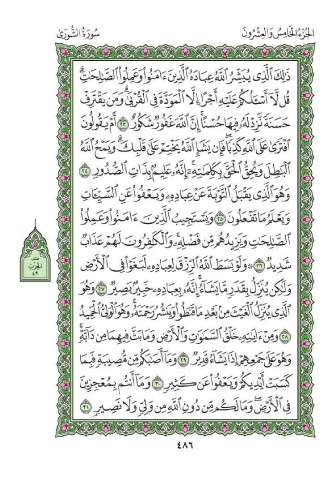 الجزء الخامس والعشرون
سورة الشورى
ذَٰلِكَ ٱلَّذِي يُبَشِّرُ ٱللَّهُ عِبَادَهُ ٱلَّذِينَ ءَامَنُوا۟ وَعَمِلُوا۟ ٱلصَّٰلِحَٰتِ ۗ
قُل لَّآ أَسْـَٔلُكُمْ عَلَيْهِ أَجْرًا إِلَّا ٱلْمَوَدَّةَ فِي ٱلْقُرْبَىٰ ۗ وَمَن يَقْتَرِفْ
حَسَنَةً نَّزِدْ لَهُۥ فِيهَا حُسْنًا ۚ إِنَّ ٱللَّهَ غَفُورٌ شَكُورٌ ٢٣ أَمْ يَقُولُونَ
ٱفْتَرَىٰ عَلَى ٱللَّهِ كَذِبًا ۖ فَإِن يَشَإِ ٱللَّهُ يَخْتِمْ عَلَىٰ قَلْبِكَ ۗ وَيَمْحُ ٱللَّهُ
ٱلْبَٰطِلَ وَيُحِقُّ ٱلْحَقَّ بِكَلِمَٰتِهِۦٓ ۚ إِنَّهُۥ عَلِيمٌۢ بِذَاتِ ٱلصُّدُورِ ٢٤
وَهُوَ ٱلَّذِي يَقْبَلُ ٱلتَّوْبَةَ عَنْ عِبَادِهِۦ وَيَعْفُوا۟ عَنِ ٱلسَّيِّـَٔاتِ
وَيَعْلَمُ مَا تَفْعَلُونَ ٢٥ وَيَسْتَجِيبُ ٱلَّذِينَ ءَامَنُوا۟ وَعَمِلُوا۟
ٱلصَّٰلِحَٰتِ وَيَزِيدُهُم مِّن فَضْلِهِۦ ۚ وَٱلْكَٰفِرُونَ لَهُمْ عَذَابٌ
شَدِيدٌ ٢٦ وَلَوْ بَسَطَ ٱللَّهُ ٱلرِّزْقَ لِعِبَادِهِۦ لَبَغَوْا۟ فِي ٱلْأَرْضِ
وَلَٰكِن يُنَزِّلُ بِقَدَرٍ مَّا يَشَآءُ ۚ إِنَّهُۥ بِعِبَادِهِۦ خَبِيرٌۢ بَصِيرٌ ٢٧ وَهُوَ
ٱلَّذِي يُنَزِّلُ ٱلْغَيْثَ مِنۢ بَعْدِ مَا قَنَطُوا۟ وَيَنشُرُ رَحْمَتَهُۥ ۚ وَهُوَ ٱلْوَلِيُّ ٱلْحَمِيدُ
٢٨ وَمِنْ ءَايَٰتِهِۦ خَلْقُ ٱلسَّمَٰوَٰتِ وَٱلْأَرْضِ وَمَا بَثَّ فِيهِمَا مِن دَآبَّةٍ ۚ
وَهُوَ عَلَىٰ جَمْعِهِمْ إِذَا يَشَآءُ قَدِيرٌ ٢٩ وَمَآ أَصَٰبَكُم مِّن مُّصِيبَةٍ فَبِمَا
كَسَبَتْ أَيْدِيكُمْ وَيَعْفُوا۟ عَن كَثِيرٍ ٣٠ وَمَآ أَنتُم بِمُعْجِزِينَ
فِي ٱلْأَرْضِ ۖ وَمَا لَكُم مِّن دُونِ ٱللَّهِ مِن وَلِيٍّ وَلَا نَصِيرٍ ٣١
الحزب
٤٩
٤٨٦